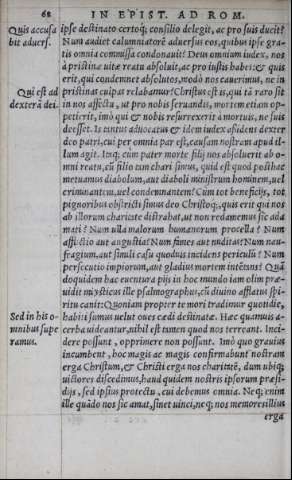 68 IN EPIST. AD ROM.
Quis accusa
bit adversf.
Qui est ad
dexterā dei.
Sed in his o-
mnibus supe
ramus.
ipse destinato certoq; consilio delegit, ac pro suis ducit?
Num audiet calumniatorē adversus eos, quibus ipse gra-
tis omnia commissa condonavit? Deus omnium iudex, nos
à pristinæ vitæ reatu absolvit, ac pro iustis habet: & quis
erit, qui condemnet absolutos, modò nos caverimus, ne in
pristinas culpas relabamur? Christus est is, qui tā raro sit
in nos affectu, ut pro nobis servandis, mortem etiam op-
petierit, imò qui & nobis resurrexerit à mortuis, ne suis
deesset. Is tantus advocatus & idem iudex aßidens dexter
deo patri, cui per omnia par est, causam nostram apud il-
lum agit. Itaq; cùm pater morte filij nos absolverit ab o-
mni reatu, cū filio tam chari simus, quid est quod posthac
metuamus diabolum, aut diaboli ministrum hominem, vel
criminantem, vel condemnantem? Cùm tot beneficijs, tot
pignoribus obstricti simus deo Christoq;, quis erit qui nos
ab illorum charitate distrahat, ut non redamemus sic ada
mati? Num ulla malorum humanorum procella? Num
afflictio aut angustia? Num fames aut nuditas? Num nau-
fragium, aut simili casu quodvis incidens periculū? Num
persecutio impiorum, aut gladius mortem intētans? Quā
doquidem hæc eventura pijs in hoc mundo iam olim præ-
vidit mysticus ille psalmographus, cū divino afflatus spi-
ritu canit: Quoniam propter te mori tradimur quotidie,
habiti sumus velut oves cædi destinatæ. Hæc quamvis a-
cerba videantur, nihil est tamen quod nos terreant. Inci-
dere possunt, opprimere non possunt. Imò quo gravius
incumbent, hoc magis ac magis confirmabunt nostram
erga Christum, & Christi erga nos charitatē, dum ubiq;
victores discedimus, haud quidem nostris ipsorum præsi-
dijs, sed ipsius protectu, cui debemus omnia. Neq; enim
ille quādo nos sic amat, sinet vinci, neq; nos memores illius
erga